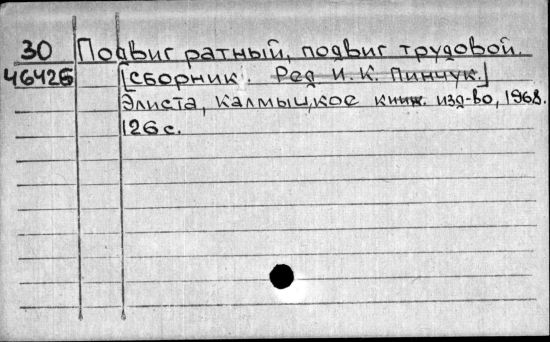 30 Подвиг ратный, подвиг трудовой.
46426 [сборник. Ред И. К. Пинчук.]
Элиста, Калмыцкое книж. изд-во, 1968.
126 с.